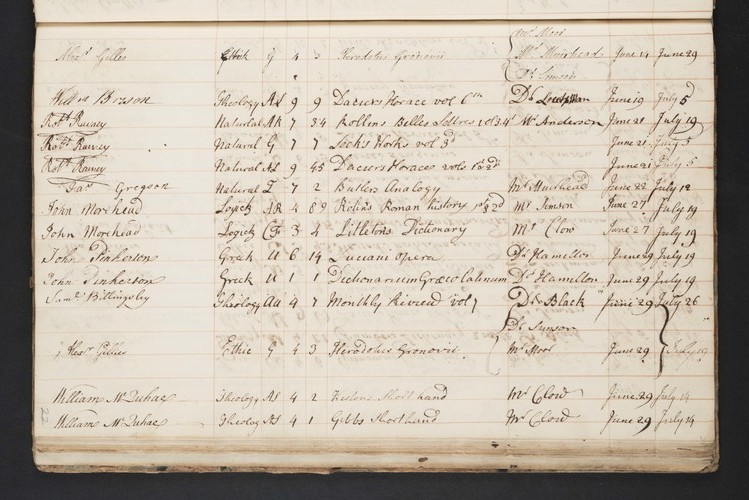 Mr Moor
Alexr Gillies Ethick G 4 3 Herodotus Gronovii Mr Muirhead June 14 June 29
Dr Simson
Theology AL 9 9 Daciers Horace vol 6th Dr June 19 July 5
Robt Rainey Natural AR 7 34 Rollens Belles Lettres vol 3.4 Mr Anderson June 21 July 19
Robt Rainey Natural G 7 7 Lock's Works vol 3d June 21 July 5
Robt Rainey Natural AL 9 45 Daciers Horaces vols 1st 2d June 21 July 5
Jas Gregson Natural I 7 2 Butlers Analogy Mr Muirhead June 22 July 12
John Morehead Logick AR 4 89 Rolins Roman history 1st & 2d Mr Simson June 27 July 19
John Morehead Logick 3 4 Littletons Dictionary Mr Clow June 27 July 19
John Pinkerson Greek U 6 14 Luciani Opera Dr Hamilton June 29 July 19
John Pinkerson Greek U 1 1 Dictionarium Græco Latinum Dr Hamilton June 29 July 19
Saml Billingsley Theology AU 4 7 Monthly Review vol 7 Dr Black June 29 July 26
Dr Simson
Alexr Gillies Ethic G 4 3 Herodotus Gronovii Mr Moor June 29 July 19
William McDuhae Theology AS 4 2 Short hand Mr Clow June 29 July 14
William McDuhae Theology AS 4 1 Gibbs Shorthand Mr Clow June 29 July 14